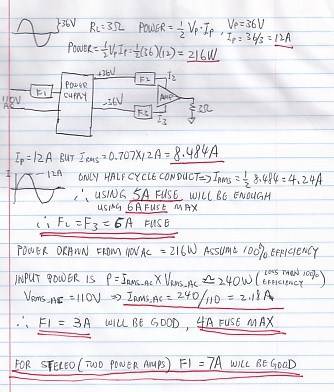 36V RL=3Ω POWER=½ VP·IP, VP=36V
IP=36/3=12A
POWER=½VPIP=½(36)(12)=216W
+36V F2 I2
F1 POWER SUPPLY AMP
110V AC -36V F3 I3 3Ω
IP=12A BUT IRMS=0.707X12A=8.484A
I 12A ONLY HALF CYCLE CONDUCT⇒IRMS=½ 8.484=4.24A
∴ USING 5A FUSE WILL BE ENOUGH
USING 6A FUSE MAX
∴ F2=F3=6A FUSE
POWER DRAWN FROM 110VAC =216W ASSUME 100% EFFICIENCY
INPUT POWER IS P=IRMS_AC X VRMS_AC ≅ 240W (LESS THAN 100% EFFICIENCY)
VRMS_AC=110V ⇒ IRMS_AC=240/110=2.18A
∴ F1=3A WILL BE GOOD, 4A FUSE MAX
FOR STEREO (TWO POWER AMPS) F1=7A WILL BE GOOD